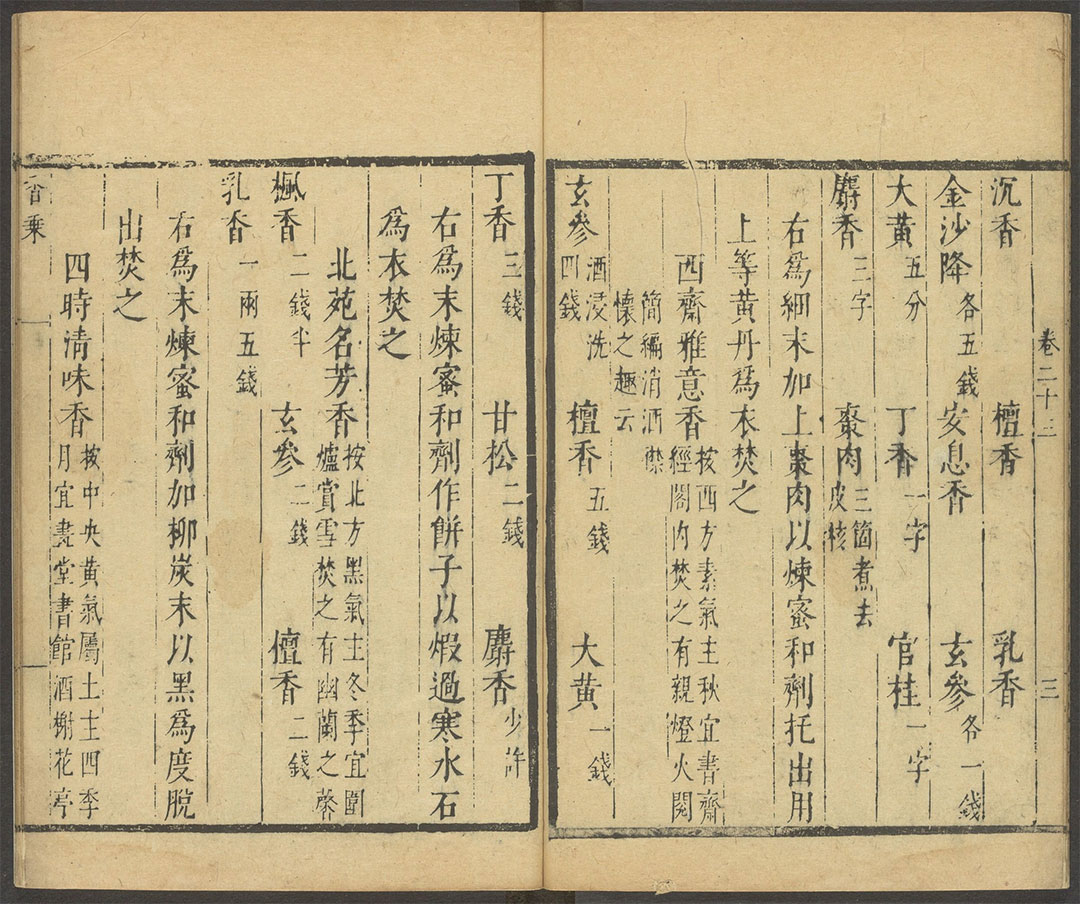 卷二十三 三
沉香 檀香 乳香
金沙降 各五錢 安息香 玄參 各一錢
大黃 五分 丁香 一字 官桂 一字
麝香 三字 棗肉 三箇煮去皮核
右爲細末加上棗肉以煉蜜和劑托出用
上等黃丹爲衣焚之
西齋雅意香 按西方素氣主秋宜書齋
經閣內焚之有親燈火閱
簡編消洒襟
懷之趣云
玄參 酒浸洗四錢 檀香 五錢 大黃 一錢
丁香 三錢 甘松 二錢 麝香 少許
右爲末煉蜜和劑作餅子以煆過寒水石
爲衣焚之
北苑名芳香 按北方黑氣主冬季宜圍
爐賞雪焚之有幽蘭之馨
楓香 二錢半 玄參 二錢 檀香 二錢
乳香 一兩五錢
右爲末煉蜜和劑加柳炭末以黑爲度脫
出焚之
四時清味香 按中央黃氣屬土主四季
月宜畫堂書館酒榭花亭
香乗